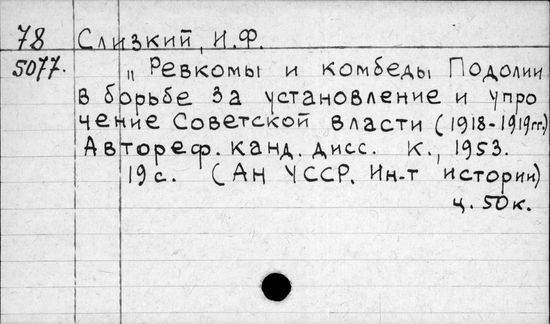 78 Слизкий, И.Ф.
5077. „Ревкомы и комбеды Подолии
в борьбе за установление и упро
чение Советской власти (1918-1919гг.)
Автореф. канд. дисс. К., 1953.
19с. (Ан УССР. Ин-т истории)
ц. 50к.